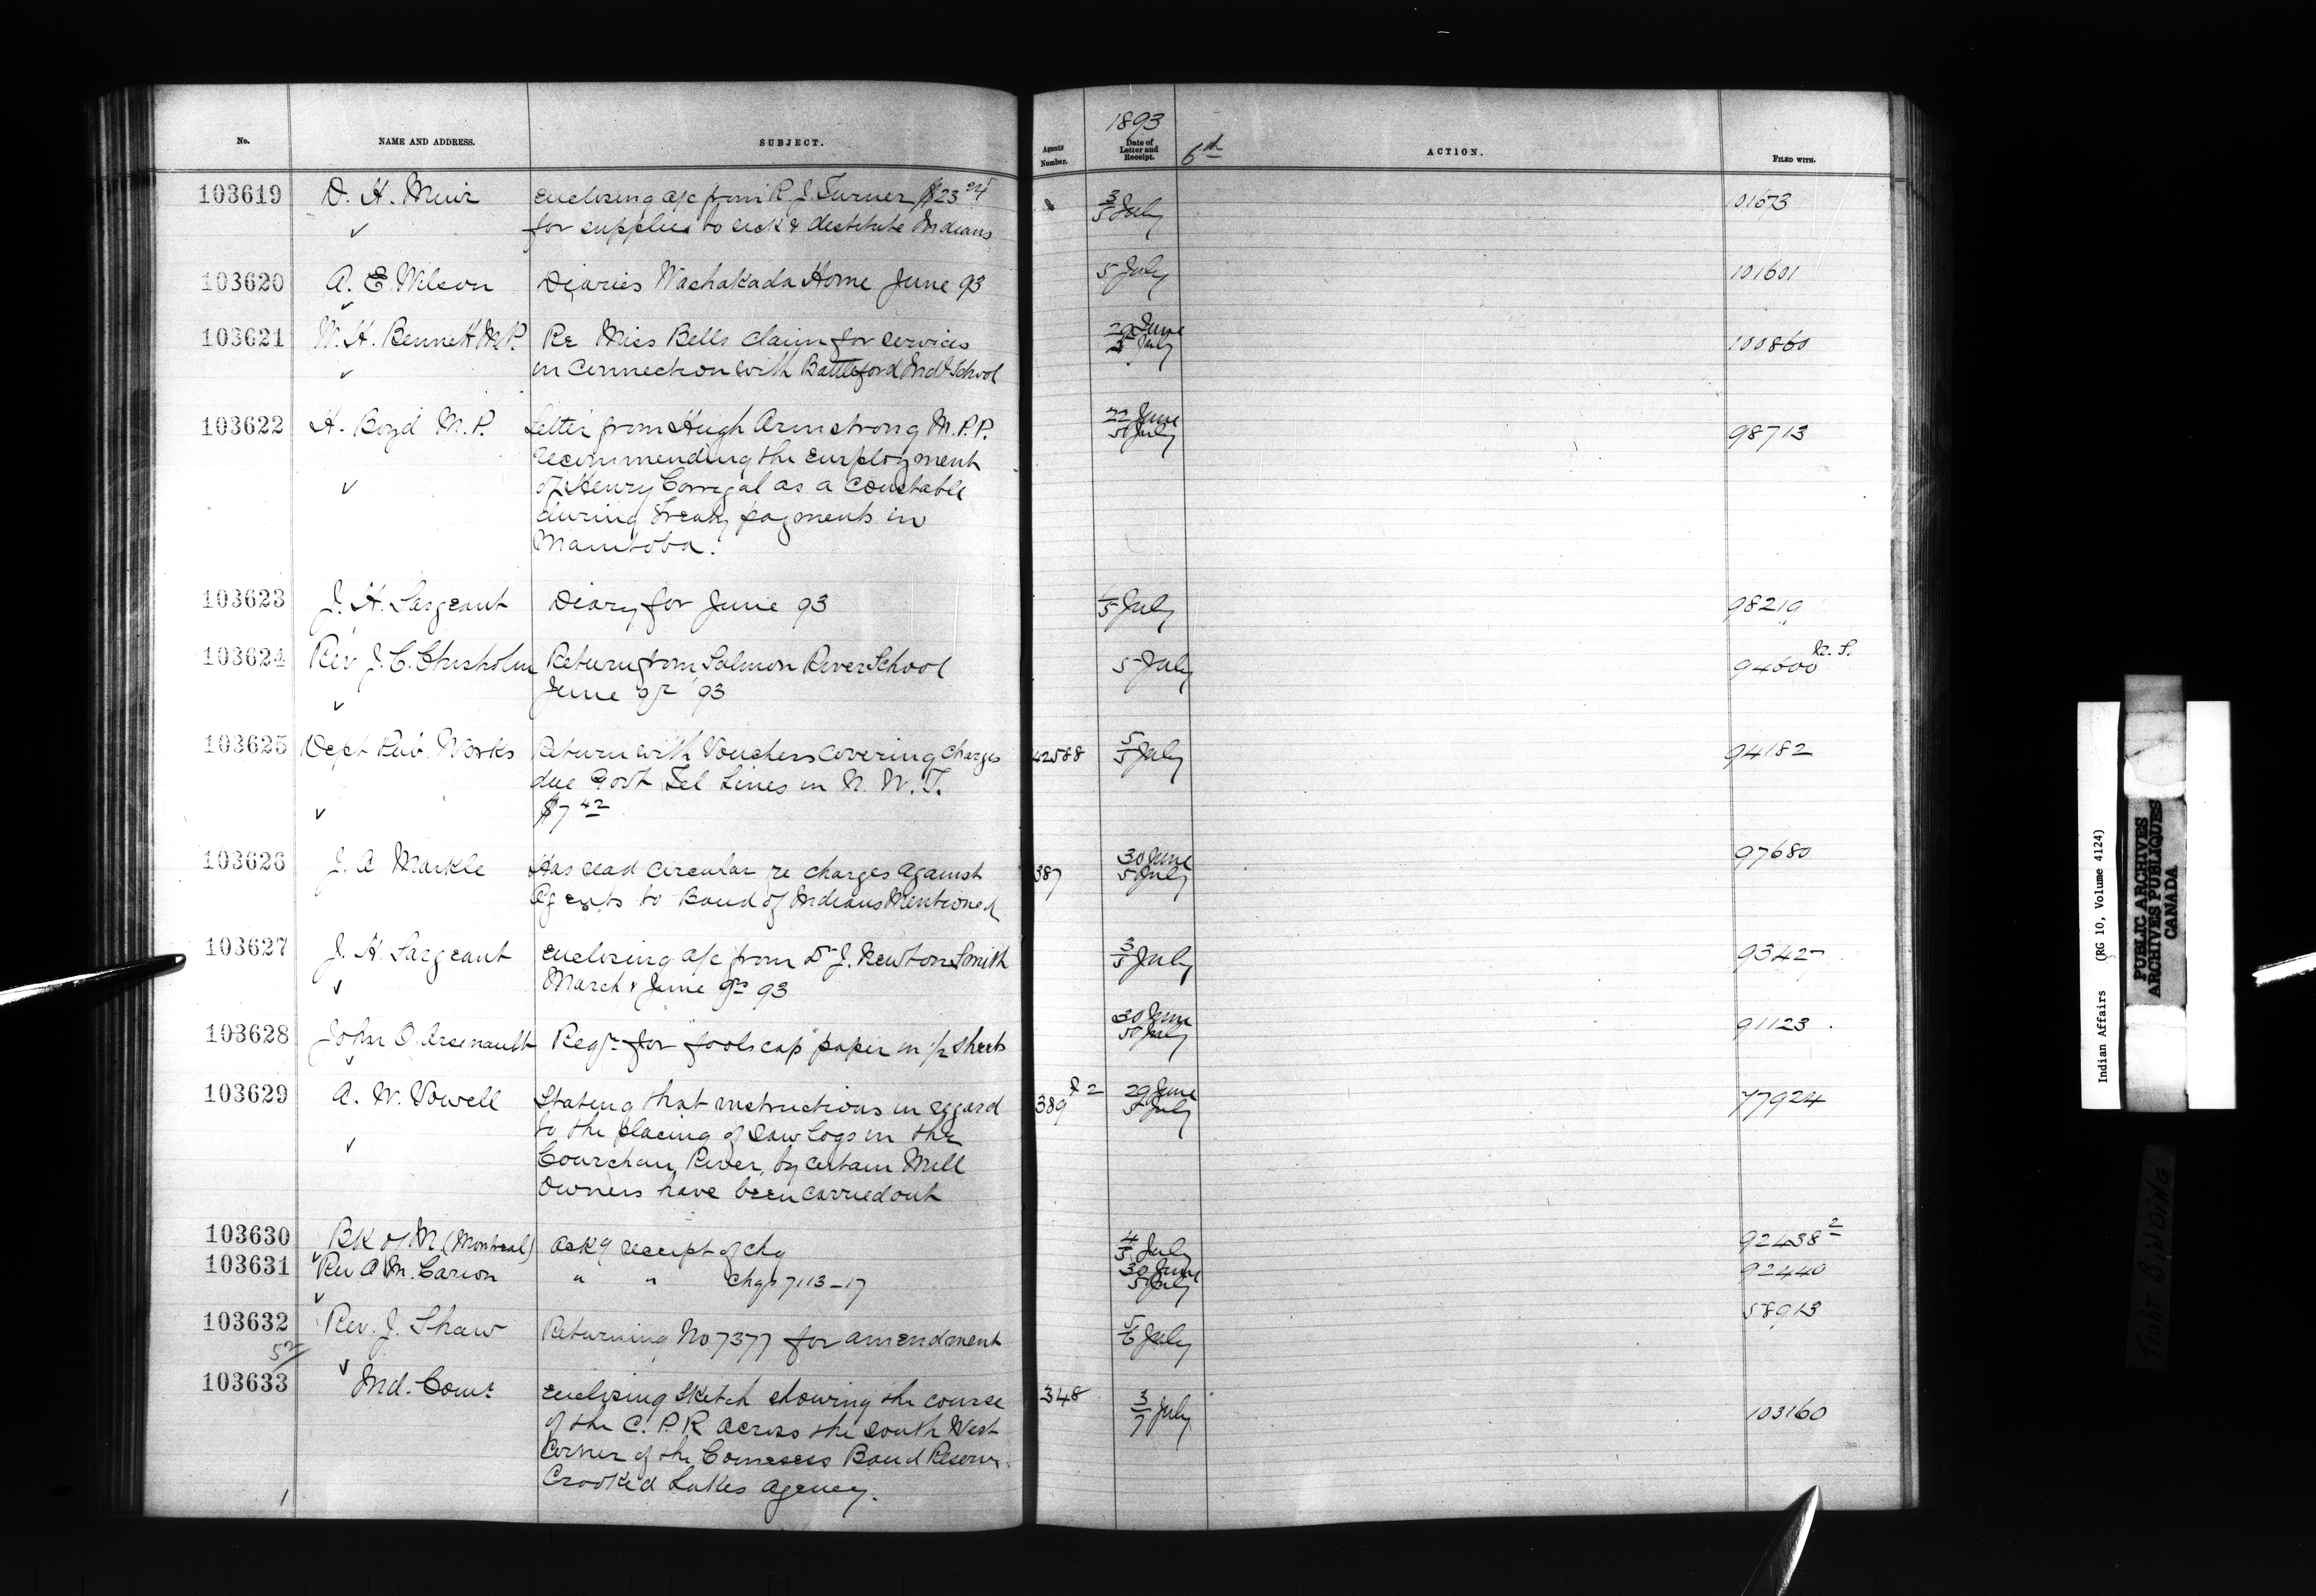 No. NAME AND ADDRESS. SUBJECT. Agents Number. 1893 Date of Letter and Receipt. 6th ACTION. FILED WITH.
103619 D. H. Muir enclosing a/c from R. J. Turner $23 24 3/5 July 101673
for supplies to sick & destitute Indians
103620 A. E. Wilson Diaries Washakada Home June 93 5 July 101601
103621 W. H. Bennett M.P. Re Miss Bells claim for services 29 June 100860
in connection with Battleford Indl School 5 July
103622 H. Boyd M.P. Letter from Hugh Armstrong M.P.P. 22 June 98713
recommending the employment 5 July
of Henry Corrigal as a constable
during Treaty payments in
Manitoba.
103623 J. H. Sargeant Diary for June 93 1/5 July 98219
103624 Rev J. C. Chisholm Return from Salmon River School 5 July 94600 N.S.
June qr 93
103625 Dept Pub. Works Return with Vouchers covering charges 42588 5/5 July 94182
due Govt Tel Lines in N. W. T.
$7 42
103626 J. A Markle Has read circular re charges against 387 30 June 97680
Agents to Band of Indians Mentioned 5 July
103627 J. H. Sargeant enclosing a/c from Dr J. Newton Smith 3/5 July 93427
March & June qrs 93
103628 John O. Arsenault Reqn for foolscap paper in 1/2 sheets 30 June 91123
5 July
103629 A. W. Vowell Stating that instructions in regard 389 29 June 77924
to the placing of saw logs in the 5 July
Cowichan River, by certain Mill
Owners have been carried out
103630 Bk of M (Montreal) Ackg receipt of chq 4/5 July 92438 2
103631 Rev A M. Carion " " Chqs 7113-17 30 June 92440
5 July
103632 Rev. J. Shaw Returning No 7377 for amendment 5/6 July 58913
103633 Ind. Comr enclosing sketch showing the course 348 3/7 July 103160
of the C. P. R across the South West
Corner of the Cowesess Band Reserve
Crooked Lakes Agency.
Indian Affairs (RG 10, Volume 4124)
PUBLIC ARCHIVES
ARCHIVES PUBLIQUES
CANADA
TIGHT BINDING